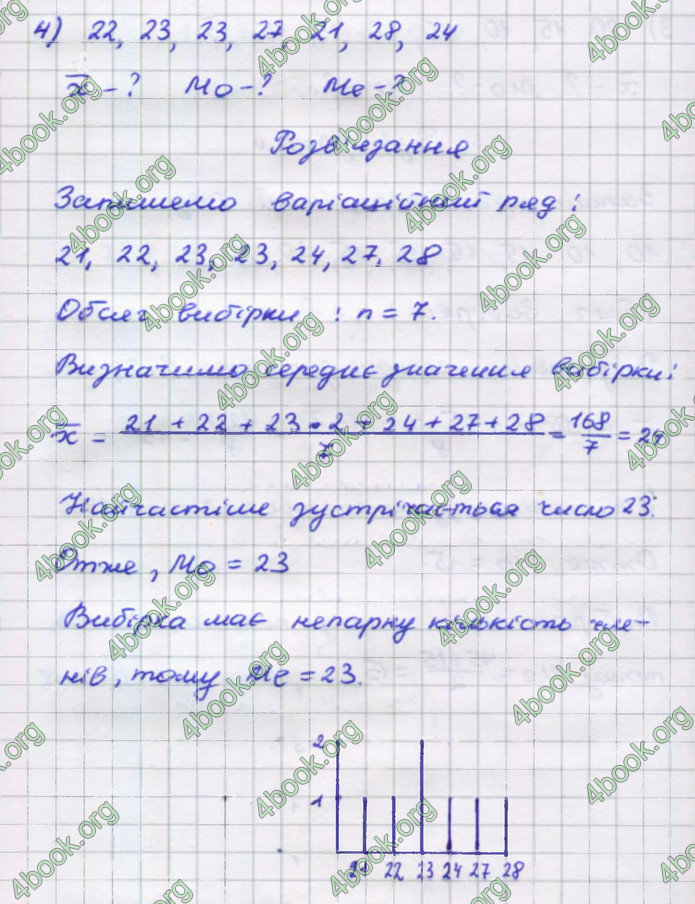 4) 22, 23, 23, 27, 21, 28, 24
x̄ - ? Mo - ? Me - ?
Розв'язання
Запишемо варіаційний ряд:
21, 22, 23, 23, 24, 27, 28
Обсяг вибірки : n = 7.
Визначимо середнє значення вибірки:
x̄ = (21 + 22 + 23 • 2 + 24 + 27 + 28) / 7 = 168/7 = 24
Найчастіше зустрічається число 23.
Отже, Mo = 23
Вибірка має непарну кількість чле-
нів, тому Me = 23.
2
1
21 22 23 24 27 28
4book.org